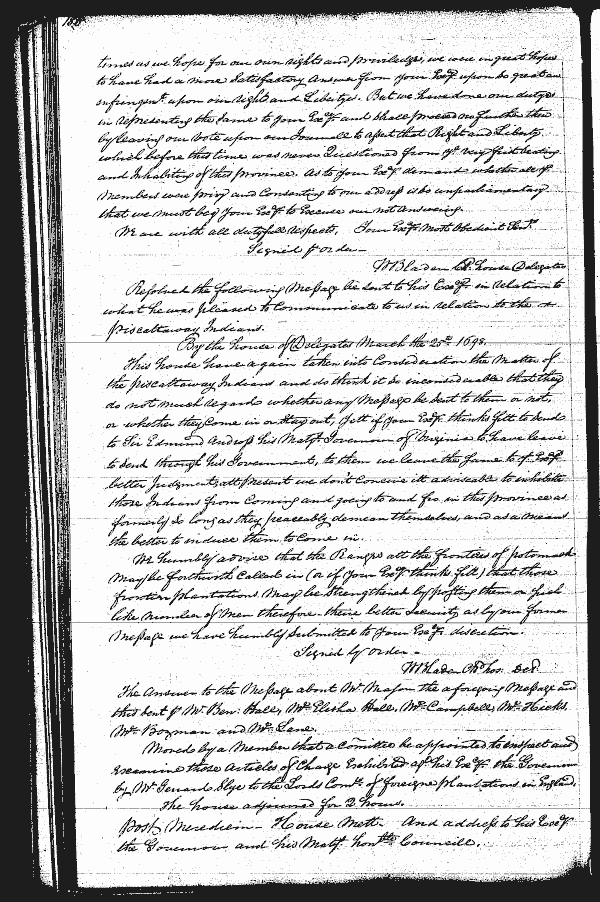 times as we hope for our own rights and priviledges, we were in great hopes
to have had a more Satisfactory Answer from your Exy. upon so great an
infringemt. upon our rights and Libertys. But we have done our dutys
in representing the Same to your Exy. and shall proceed no further then
by leaving our vote upon our Journall to assert that Right and Liberty
which before this time was never Questioned from ye. very first Seating
and Inhabiting of this Province. As to your Exy. demand whether all ye.
members were privy and Consenting to our address is so unparliamentary
that we must beg your Exy. to Excuse our not Answering.
We are with all dutyfull respects, Your Exys. Most Obedient Servts.
Signed p order
WBladen Cl. house Delegates
Resolved the following Message be sent to his Exy. in relation to
what he was pleased to Communicate to us in relation to the
Piscattaway Indians.
By the house of Delegates March the 25th. 1698.
This house have again taken into Consideration the Matter of
the piscattaway Indians and do think it so inconsiderable that they
do not much regard whether any Message be sent to them or not,
or whether they Come in or stay out, yett if your Exy. thinks fitt to send
to Sir Edmund Andros his Matys. Governour of Virginia to have leave
to send through his Government, to them we leave the Same to yr. Exys.
better Judgment, att present we don't Conceive itt adviseable to inhibite
those Indians from Coming and going to and fro in this province as
formerly so long as they peaceably demean themselves, and as a means
the better to induce them to Come in.
We humbly advise that the Ranges att the frontees of potomack
may be forthwith Called in (or if your Exy. think fitt) that those
frontier plantations may be Strengthened by posting them or such
like number of Men therefore their better Security as by our former
Message we have humbly Submitted to your Exys. discretion.
Signed by order
WBladen Cl. hos. Del.
The Answer to the Message about Mr. Mason the aforegoing Message and
this sent p Mr. Ben. Hall, Mr. Elisha Hall, Mr. Campbell, Mr. Hicks
Mr. Bozman and Mr. Lane.
Moved by a Member that a Comittee be appointed to inspect and
Examine those Articles of Charge Exhibited agt. his Exy. the Governour
by Mr. Gerrard Slye to the Lords Comrs. of foreigne plantations in England.
The house adjourned for 2 hours.
Post Merediem House Mett. And address to his Exy.
the Governour and his Matys. honble. Councill.